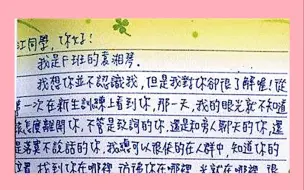 江同學,你好!
我是F班的袁湘琴.
我想你並不認識我,但是我對你卻很了解喔!從
第一次在新生訓練上看到你,那一天,我的眼光就不知道
該怎麼離開你,不管是致詞的你,還是和旁人聊天的你,還
是落單不說話的你,我總可以很快的在人群中,知道你的
找到你在哪裡